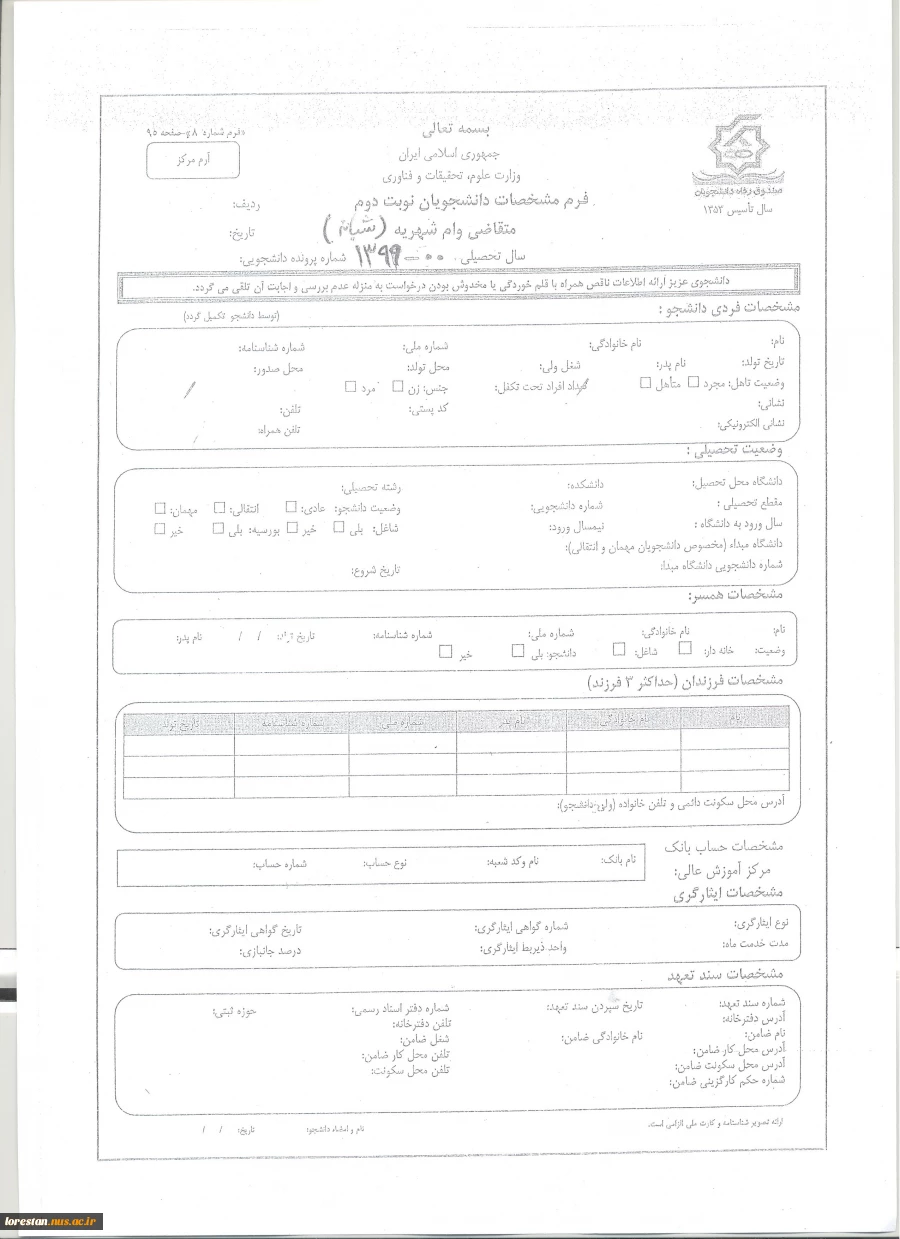 بسمه تعالی
«فرم شماره ۸ج-صفحه ۹۵
جمهوری اسلامی ایران
آرم مرکز
وزارت علوم، تحقیقات و فناوری
صندوق رفاه دانشجویان
سال تأسیس ۱۳۵۳
فرم مشخصات دانشجویان نوبت دوم
ردیف:
متقاضی وام شهریه (شبانه)
تاریخ:
سال تحصیلی ۰۰-۱۳۹۹ شماره پرونده دانشجویی:
دانشجوی عزیز ارائه اطلاعات ناقص همراه با قلم خوردگی یا مخدوش بودن درخواست به منزله عدم بررسی و اجابت آن تلقی می گردد.
مشخصات فردی دانشجو : (توسط دانشجو تکمیل گردد)
نام: نام خانوادگی: شماره ملی: شماره شناسنامه:
تاریخ تولد: نام پدر: شغل ولی: محل تولد: محل صدور:
وضعیت تاهل: مجرد □ متأهل □ تعداد افراد تحت تکفل: جنس: زن □ مرد □
نشانی: کد پستی: تلفن:
نشانی الکترونیکی: تلفن همراه:
وضعیت تحصیلی :
دانشگاه محل تحصیل: دانشکده: رشته تحصیلی:
مقطع تحصیلی : شماره دانشجویی: وضعیت دانشجو: عادی: □ انتقالی: □ مهمان: □
سال ورود به دانشگاه : نیمسال ورود: شاغل: بلی □ خیر □ بورسیه: بلی □ خیر □
دانشگاه مبداء (مخصوص دانشجویان مهمان و انتقالی):
شماره دانشجویی دانشگاه مبدا: تاریخ شروع:
مشخصات همسر:
نام: نام خانوادگی: شماره ملی: شماره شناسنامه: تاریخ تولد: / / نام پدر:
وضعیت: خانه دار: □ شاغل: □ دانشجو: بلی □ خیر □
مشخصات فرزندان (حداکثر ۳ فرزند)
نام نام خانوادگی نام پدر شماره ملی شماره شناسنامه تاریخ تولد
آدرس محل سکونت دائمی و تلفن خانواده (ولی دانشجو):
مشخصات حساب بانک
مرکز آموزش عالی:
نام بانک: نام وکد شعبه: نوع حساب: شماره حساب:
مشخصات ایثارگری
نوع ایثارگری: شماره گواهی ایثارگری: تاریخ گواهی ایثارگری:
مدت خدمت ماه: واحد ذیربط ایثارگری: درصد جانبازی:
مشخصات سند تعهد
شماره سند تعهد: تاریخ سپردن سند تعهد: شماره دفتر اسناد رسمی: حوزه ثبتی:
آدرس دفترخانه: تلفن دفترخانه:
نام ضامن: نام خانوادگی ضامن: شغل ضامن:
آدرس محل کار ضامن: تلفن محل کار ضامن:
آدرس محل سکونت ضامن: تلفن محل سکونت:
شماره حکم کارگزینی ضامن:
ارائه تصویر شناسنامه و کارت ملی الزامی است. نام و امضاء دانشجو: تاریخ: / /
lorestan.nus.ac.ir